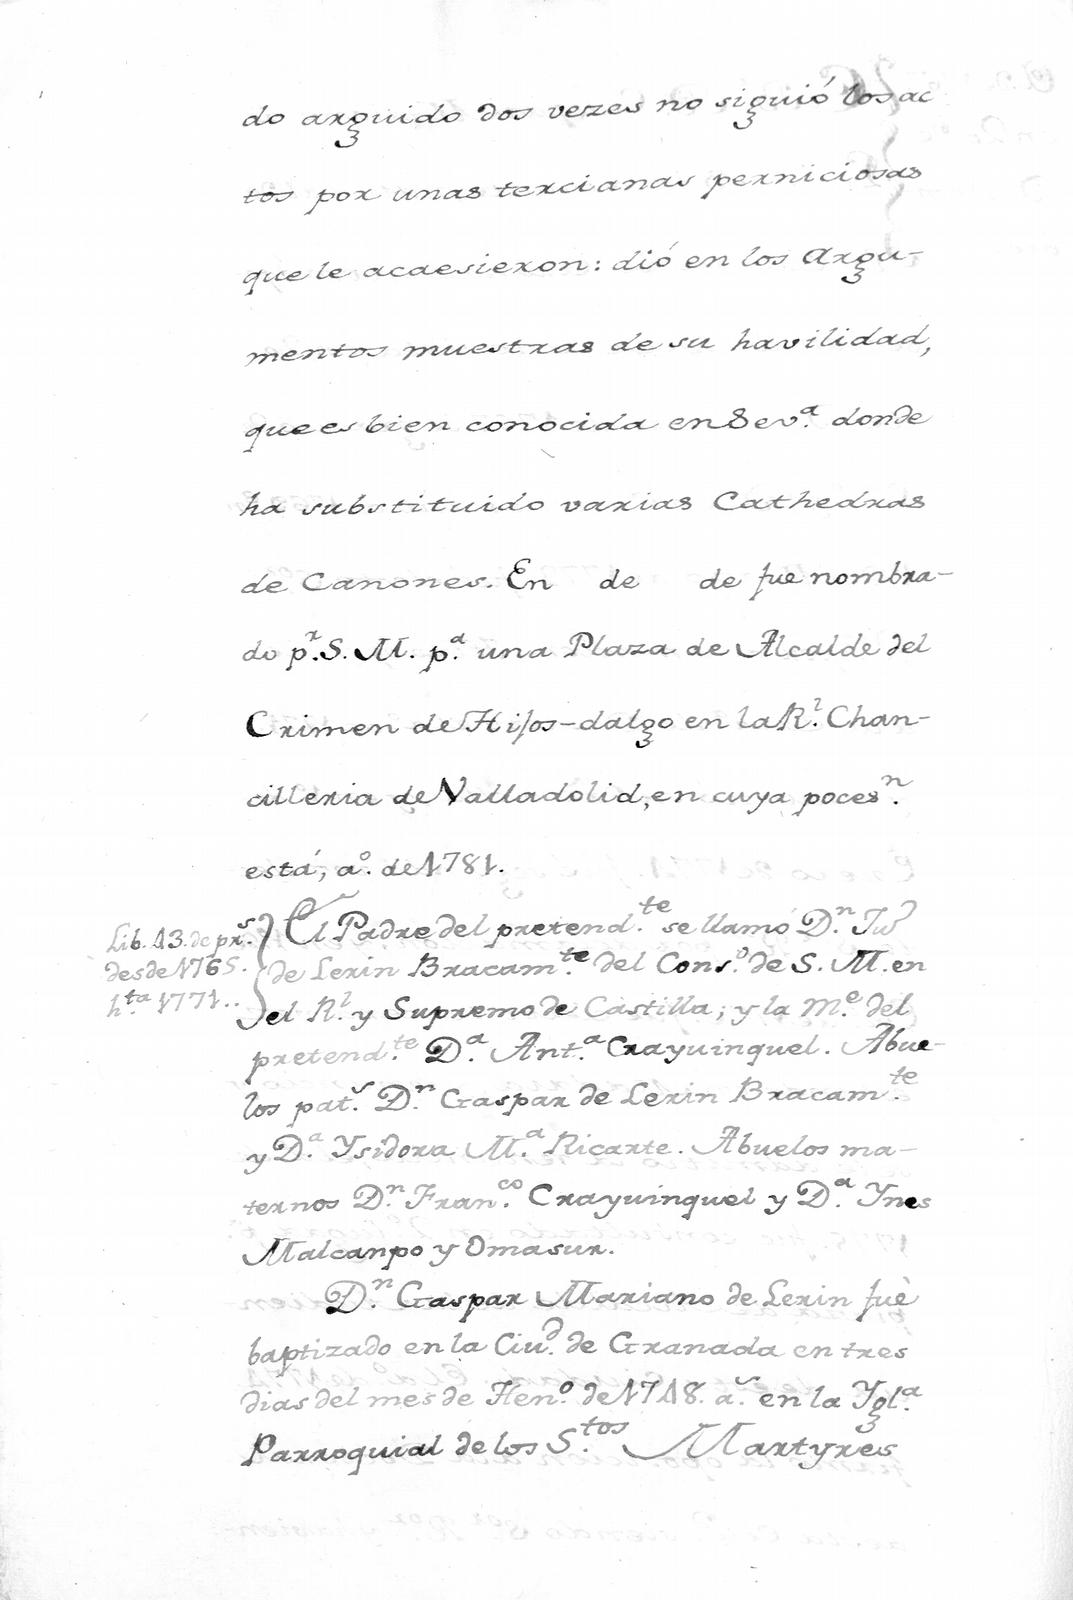 do arguido dos vezes no siguió los ac
tos por unas tercianas perniciosas
que le acaesieron: dió en los Argu-
mentos muestras de su havilidad,
que es bien conocida en Sev.ª donde
ha substituido varias Cathedras
de Canones. En de de fue nombra-
do p.r S. M. p.ª una Plaza de Alcalde del
Crimen de Hijos-dalgo en la R.l Chan-
cilleria de Valladolid, en cuya poces.n
está, a.º de 1781.
Lib. 13. de pr.s
desde 1765.
h.ta 1771..
El Padre del pretend.te se llamó D.n
de Lerin Bracam.te del Cons.º de S. M. en
el R.l y Supremo de Castilla; y la M.e del
pretend.te D.ª Ant.ª Crayuinquel. Abue-
los pat.s D.n Gaspar de Lerin Bracam.te
y D.ª Ysidora M.ª Ricarte. Abuelos ma-
ternos D.n Fran.co Crayuinquel y D.ª Ynes
Malcanpo y Omasur.
D.n Gaspar Mariano de Lerin fué
baptizado en la Ciu.d de Granada en tres
dias del mes de Hen.º de 1748. a.s en la Ygl.ª
Parroquial de los S.tos Martyres